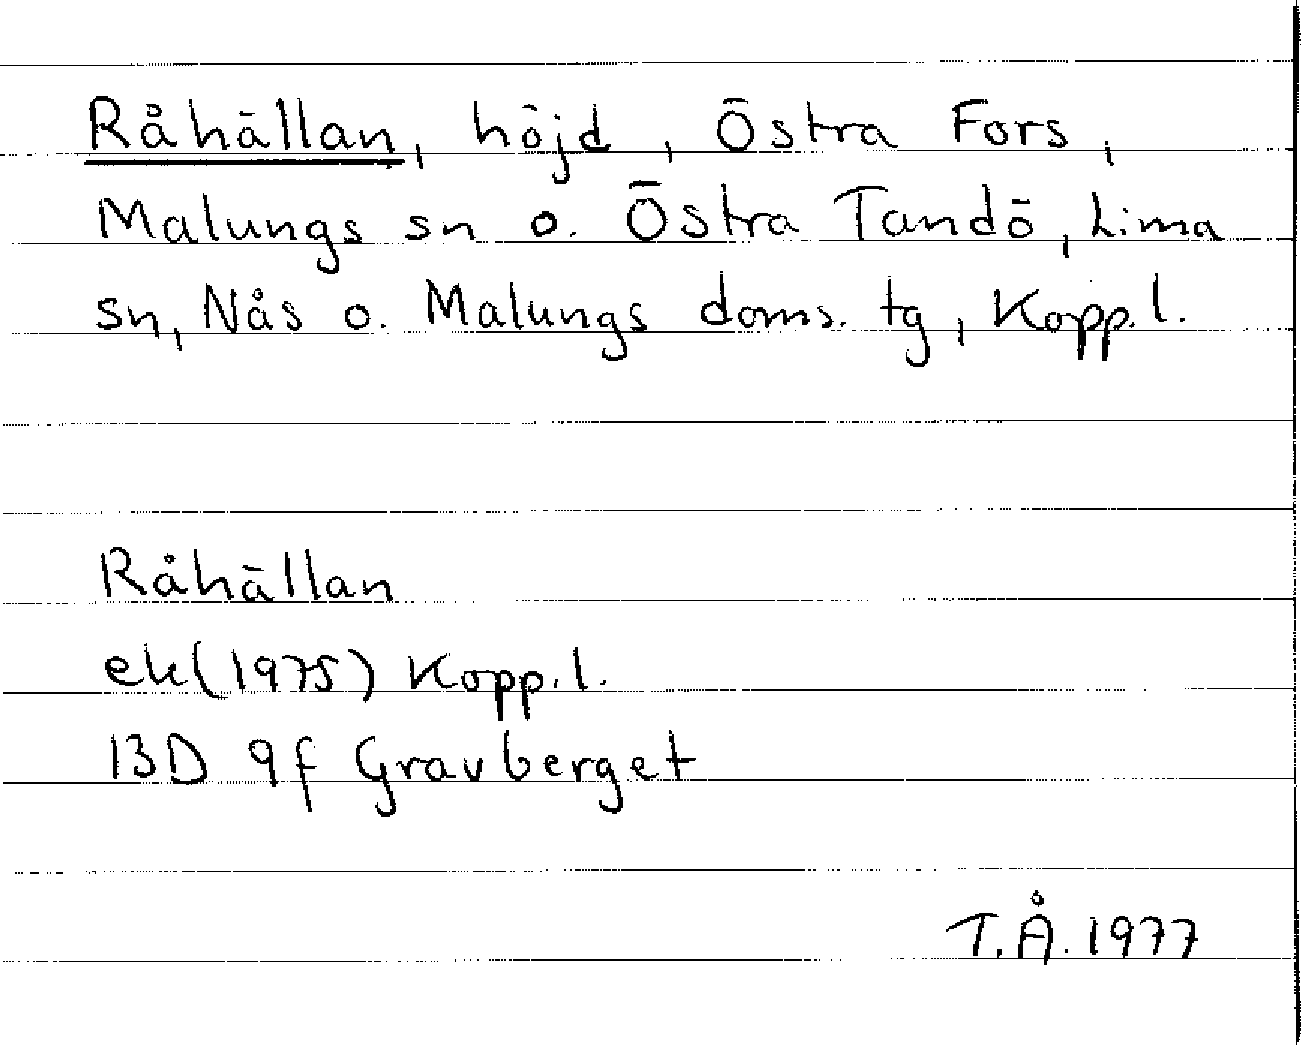 Råhällan, höjd, Östra Fors,
Malungs sn o. Östra Tandö, Lima
sn, Nås o. Malungs doms. tg, Kopp.l.
Råhällan
ek(1975) Kopp.l.
13D 9f Gravberget
T.Å. 1977